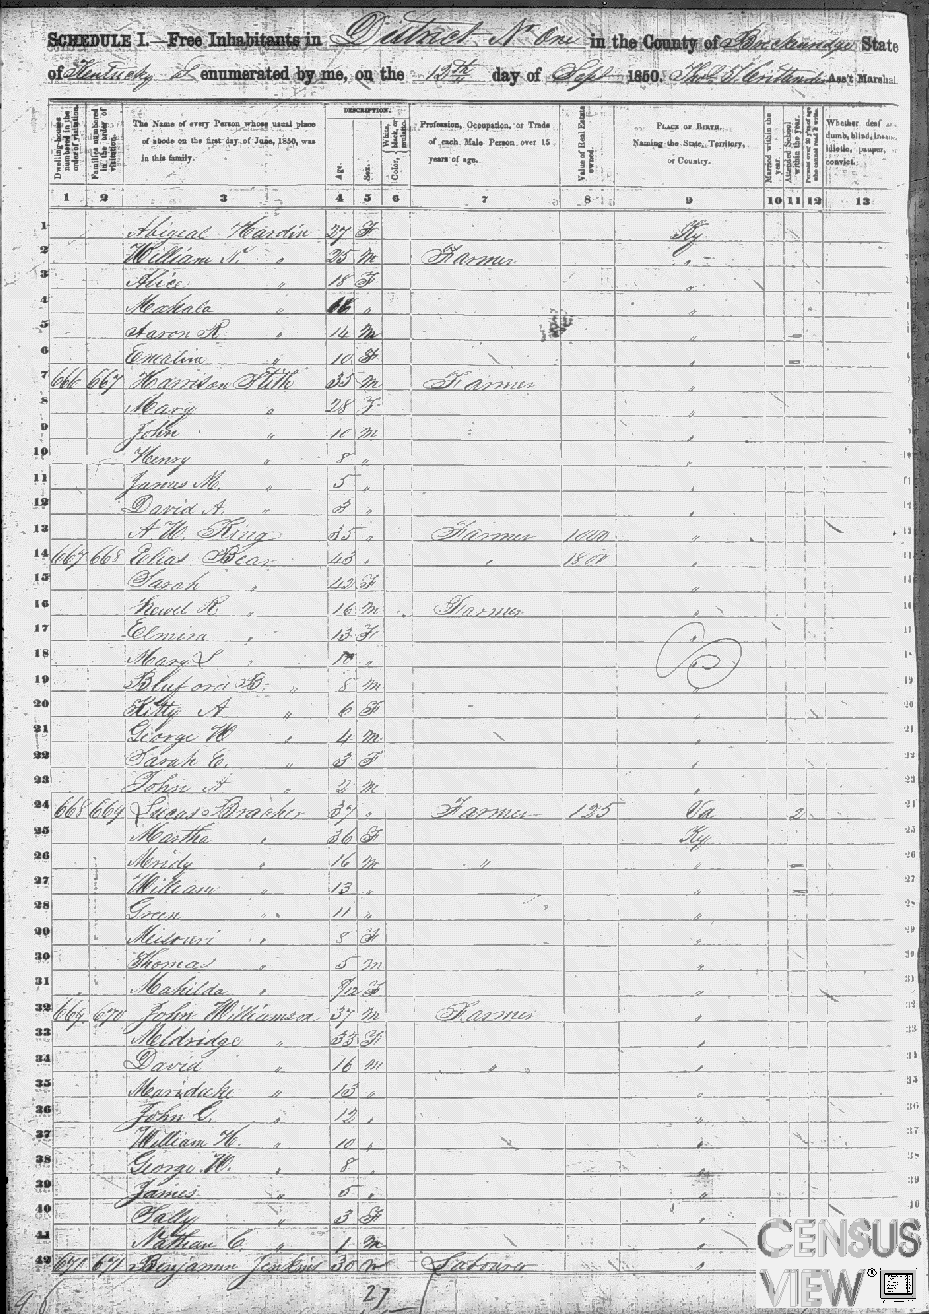 SCHEDULE I.—Free Inhabitants in District No One in the County of Breckenridge State
of Kentucky enumerated by me, on the 12th day of Sept 1850. Ass't Marshal.
Dwelling-houses numbered in the order of visitation.
Families numbered in the order of visitation.
The Name of every Person whose usual place of abode on the first day of June, 1850, was in this family.
DESCRIPTION.
Age.
Sex.
Color, White, black, or mulatto.
Profession, Occupation, or Trade of each Male Person over 15 years of age.
Value of Real Estate owned.
PLACE OF BIRTH. Naming the State, Territory, or Country.
Married within the year.
Attended School within the year.
Persons over 20 y'rs of age who cannot read & write.
Whether deaf and dumb, blind, insane, idiotic, pauper, or convict.
1 2 3 4 5 6 7 8 9 10 11 12 13
1 Abigeal Hardin 27 F Ky
2 William N. " 25 M Farmer "
3 Alice " 18 F
4 Mahala " " "
5 Aaron R. " 14 M "
6 Emaline " 10 F "
7 666 667 Harrison Stith 35 M Farmer "
8 Mary " 28 F "
9 John " 10 M "
10 Henry " 8 " "
11 James M. " 5 "
12 David A. " 3 " "
13 A W. King 35 " Farmer 1000 "
14 667 668 Elias Bear 43 " " 1800 "
15 Sarah " 42 F "
16 R. " 16 M Farmer "
17 Elmira " 13 F "
18 Mary S " 10 "
19 Bluford B. " 8 M "
20 Kitty A " 6 F "
21 George W " 4 M "
22 Sarah E. " 3 F "
23 John A " 2 M "
24 668 669 Lucas Bracher 37 " Farmer 125 Va 2
25 Martha " 36 F Ky
26 " 16 M " "
27 William " 13 " "
28 Green " 11 "
29 Missouri " 8 F
30 Thomas " 5 M "
31 Mahilda " F "
32 669 670 John Williams 37 M Farmer "
33 Meldridge " 33 F "
34 David " 16 M " "
35 " 13 " "
36 John C. " 12 " "
37 William H. " 10 " "
38 George W. " 8 " "
39 James " 5 " "
40 Sally " 3 F "
41 Nathan C. " 1 M "
42 670 671 Benjamin Jenkins 30 M Labourer "
27
CENSUS
VIEW®